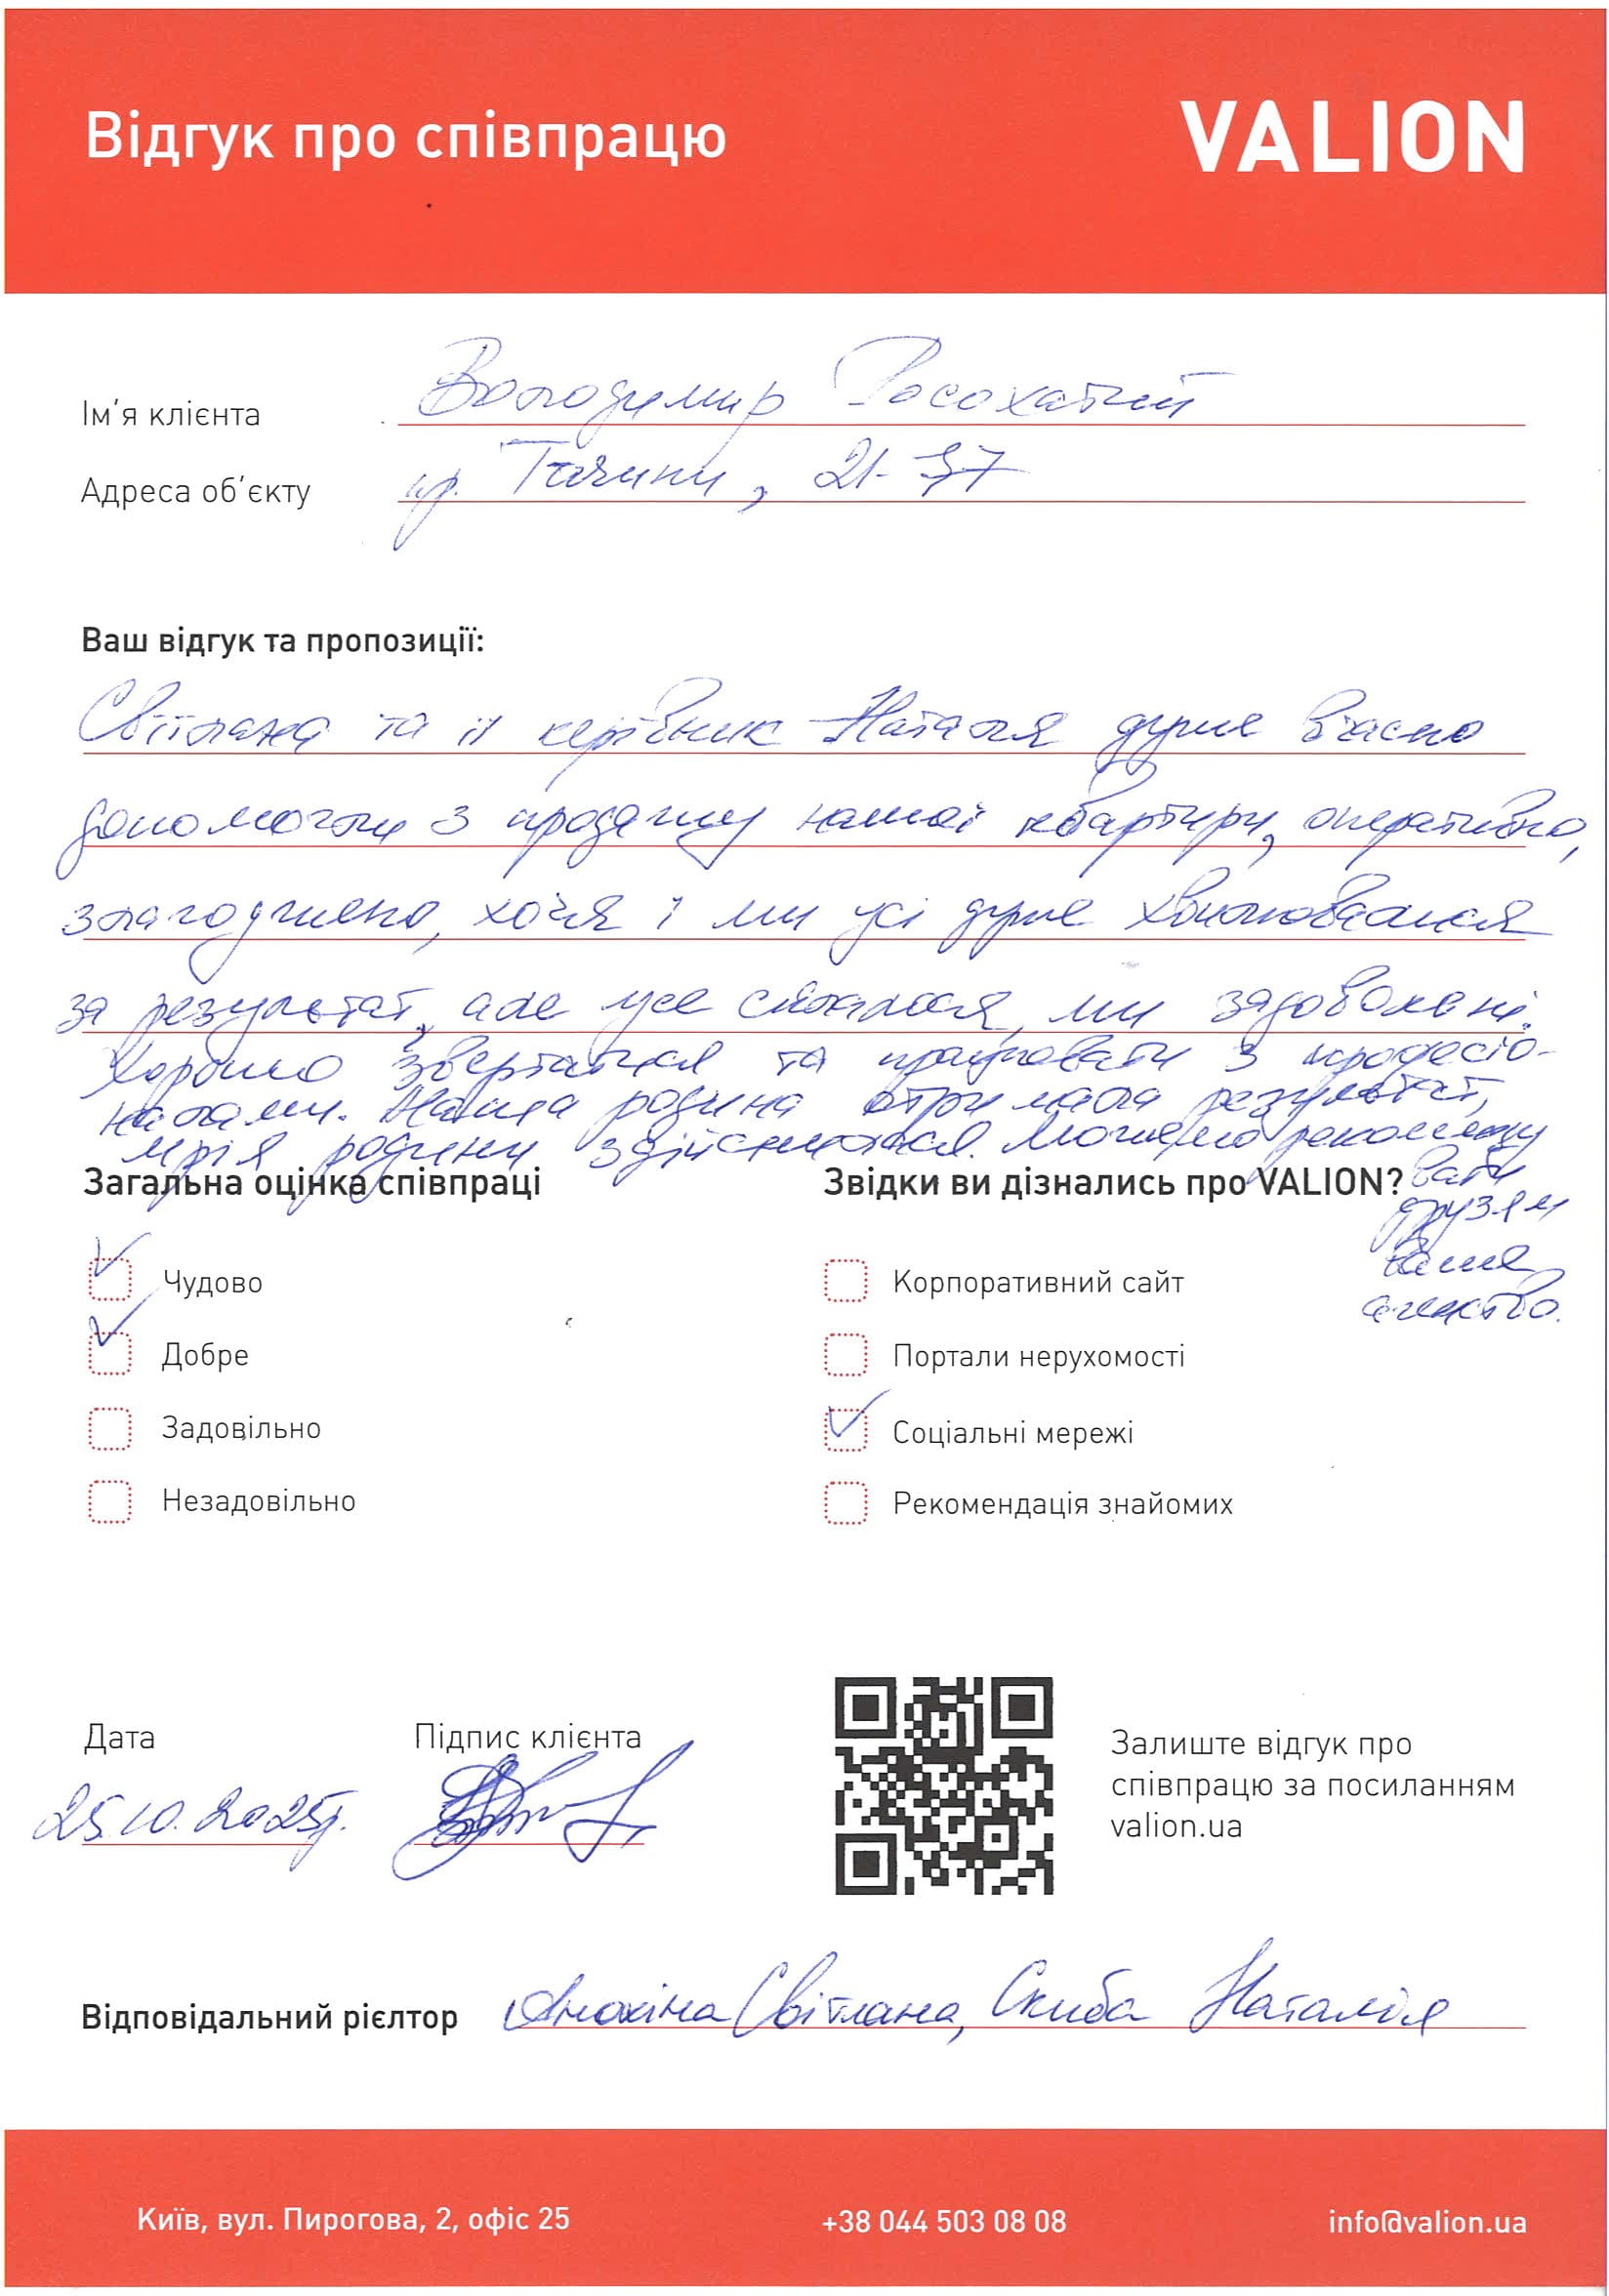 Відгук про співпрацю
VALION
Ім'я клієнта Володимир Росохатий
Адреса об'єкту пр. Тичини, 21-37
Ваш відгук та пропозиції:
Світлана та її керівник Наталя дуже вчасно
допомогли з продажу нашої квартири, оперативно,
злагоджено, хоча і ми усі дуже хвилювалися
за результат, але усе склалося, ми задоволені.
Хорошо звертатися та працювати з професіо-
налами. Наша родина отримала результат,
мрія родини здійснилася. Можемо рекоменду
вати
друзям
ваше
агенство.
Загальна оцінка співпраці
Чудово
Добре
Задовільно
Незадовільно
Звідки ви дізнались про VALION?
Корпоративний сайт
Портали нерухомості
Соціальні мережі
Рекомендація знайомих
Дата
25.10.2025р.
Підпис клієнта
Залиште відгук про
співпрацю за посиланням
valion.ua
Відповідальний рієлтор Анохіна Світлана, Скиба Наталія
Київ, вул. Пирогова, 2, офіс 25
+38 044 503 08 08
info@valion.ua